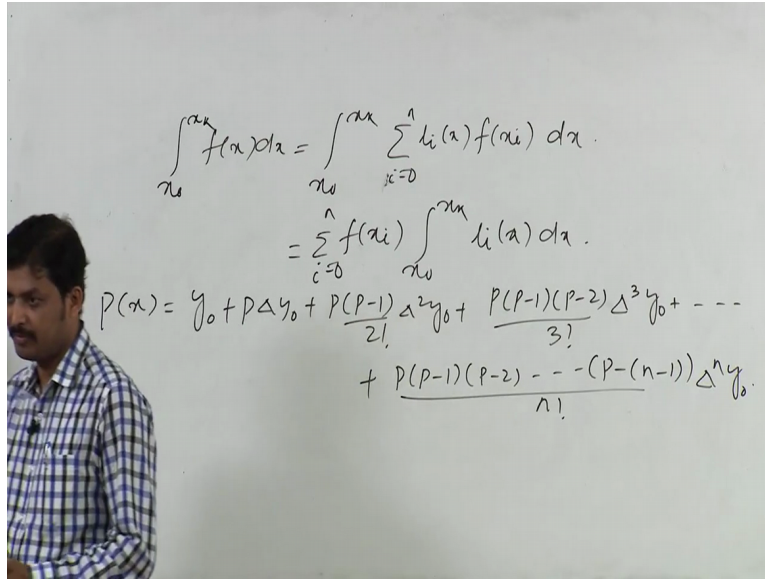 ∫_{x₀}^{xₖ} f(x)dx = ∫_{x₀}^{xₖ} Σ_{i=0}^{n} lᵢ(x) f(xᵢ) dx.
= Σ_{i=0}^{n} f(xᵢ) ∫_{x₀}^{xₖ} lᵢ(x) dx.
P(x) = y₀ + PΔy₀ + P(P-1)/2! Δ²y₀ + P(P-1)(P-2)/3! Δ³y₀ + - - -
+ P(P-1)(P-2) - - - (P-(n-1))/n! Δⁿy₀.